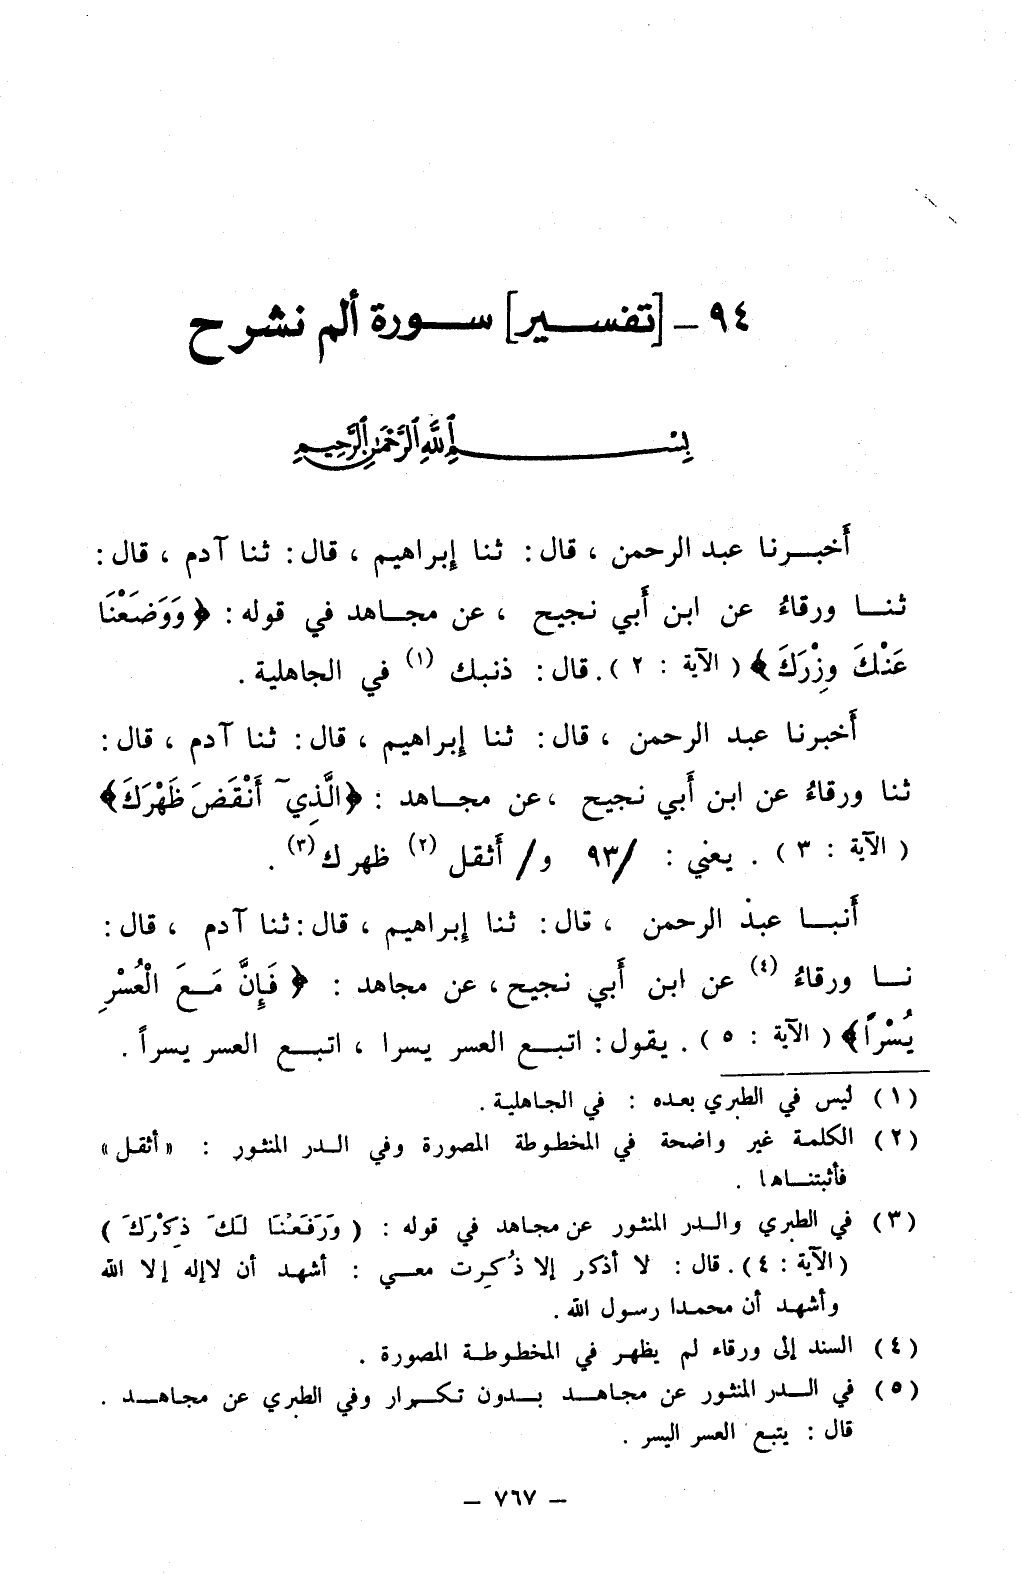 ٩٤ - [تفسير] سورة ألم نشرح
بِسْمِ اللَّهِ الرَّحْمَنِ الرَّحِيمِ
أَخبرنا عبد الرحمن ، قال : ثنا إبراهيم ، قال : ثنا آدم ، قال :
ثنا ورقاءُ عن ابن أَبي نجيح ، عن مجاهد في قوله : ﴿ وَوَضَعْنَا
عَنْكَ وِزْرَكَ ﴾ ( الآية : ٢ ) . قال : ذنبك (١) في الجاهلية .
أَخبرنا عبد الرحمن ، قال : ثنا إبراهيم ، قال : ثنا آدم ، قال :
ثنا ورقاءُ عن ابن أَبي نجيح ، عن مجاهد : ﴿الَّذِيٓ أَنْقَضَ ظَهْرَكَ﴾
( الآية : ٣ ) . يعني : /٩٣ و/ أَثقل (٢) ظهرك (٣) .
أَنبا عبد الرحمن ، قال : ثنا إبراهيم ، قال : ثنا آدم ، قال :
نا ورقاءُ (٤) عن ابن أَبي نجيح ، عن مجاهد : ﴿ فَإِنَّ مَعَ الْعُسْرِ
يُسْراً﴾ ( الآية : ٥ ) . يقول : اتبع العسر يسرا ، اتبع العسر يسراً .
(١) ليس في الطبري بعده : في الجاهلية .
(٢) الكلمة غير واضحة في المخطوطة المصورة وفي الدر المنثور : «أثقل»
فأثبتناها .
(٣) في الطبري والدر المنثور عن مجاهد في قوله : ( وَرَفَعْنَا لَكَ ذِكْرَكَ )
(الآية : ٤) . قال : لا أذكر إلا ذُكِرت معي : أشهد أن لاإله إلا الله
وأشهد أن محمدا رسول الله .
(٤) السند إلى ورقاء لم يظهر في المخطوطة المصورة .
(٥) في الدر المنثور عن مجاهد بدون تكرار وفي الطبري عن مجاهد .
قال : يتبع العسر اليسر .
- ٧٦٧ -